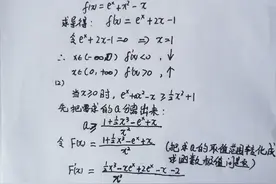 f(x)=eˣ+x²-x
求导得: f'(x)=eˣ+2x-1
令 eˣ+2x-1=0 ⇒ x=1
∴ x∈(-∞,0) f'(x)<0, ↓
x∈(0,+∞) f'(x)>0, ↑
(2)
当x≥0时, eˣ+ax²-x ≥ ½x³+1
先把需求的a分离出来:
a ≥ (1+½x³-eˣ+x)/x²
令 F(x)= (1+½x³-eˣ+x)/x² (把求a的取值范围转化成
求函数极值问题)
F'(x)= (½x³-xeˣ+2eˣ-x-2)/x³